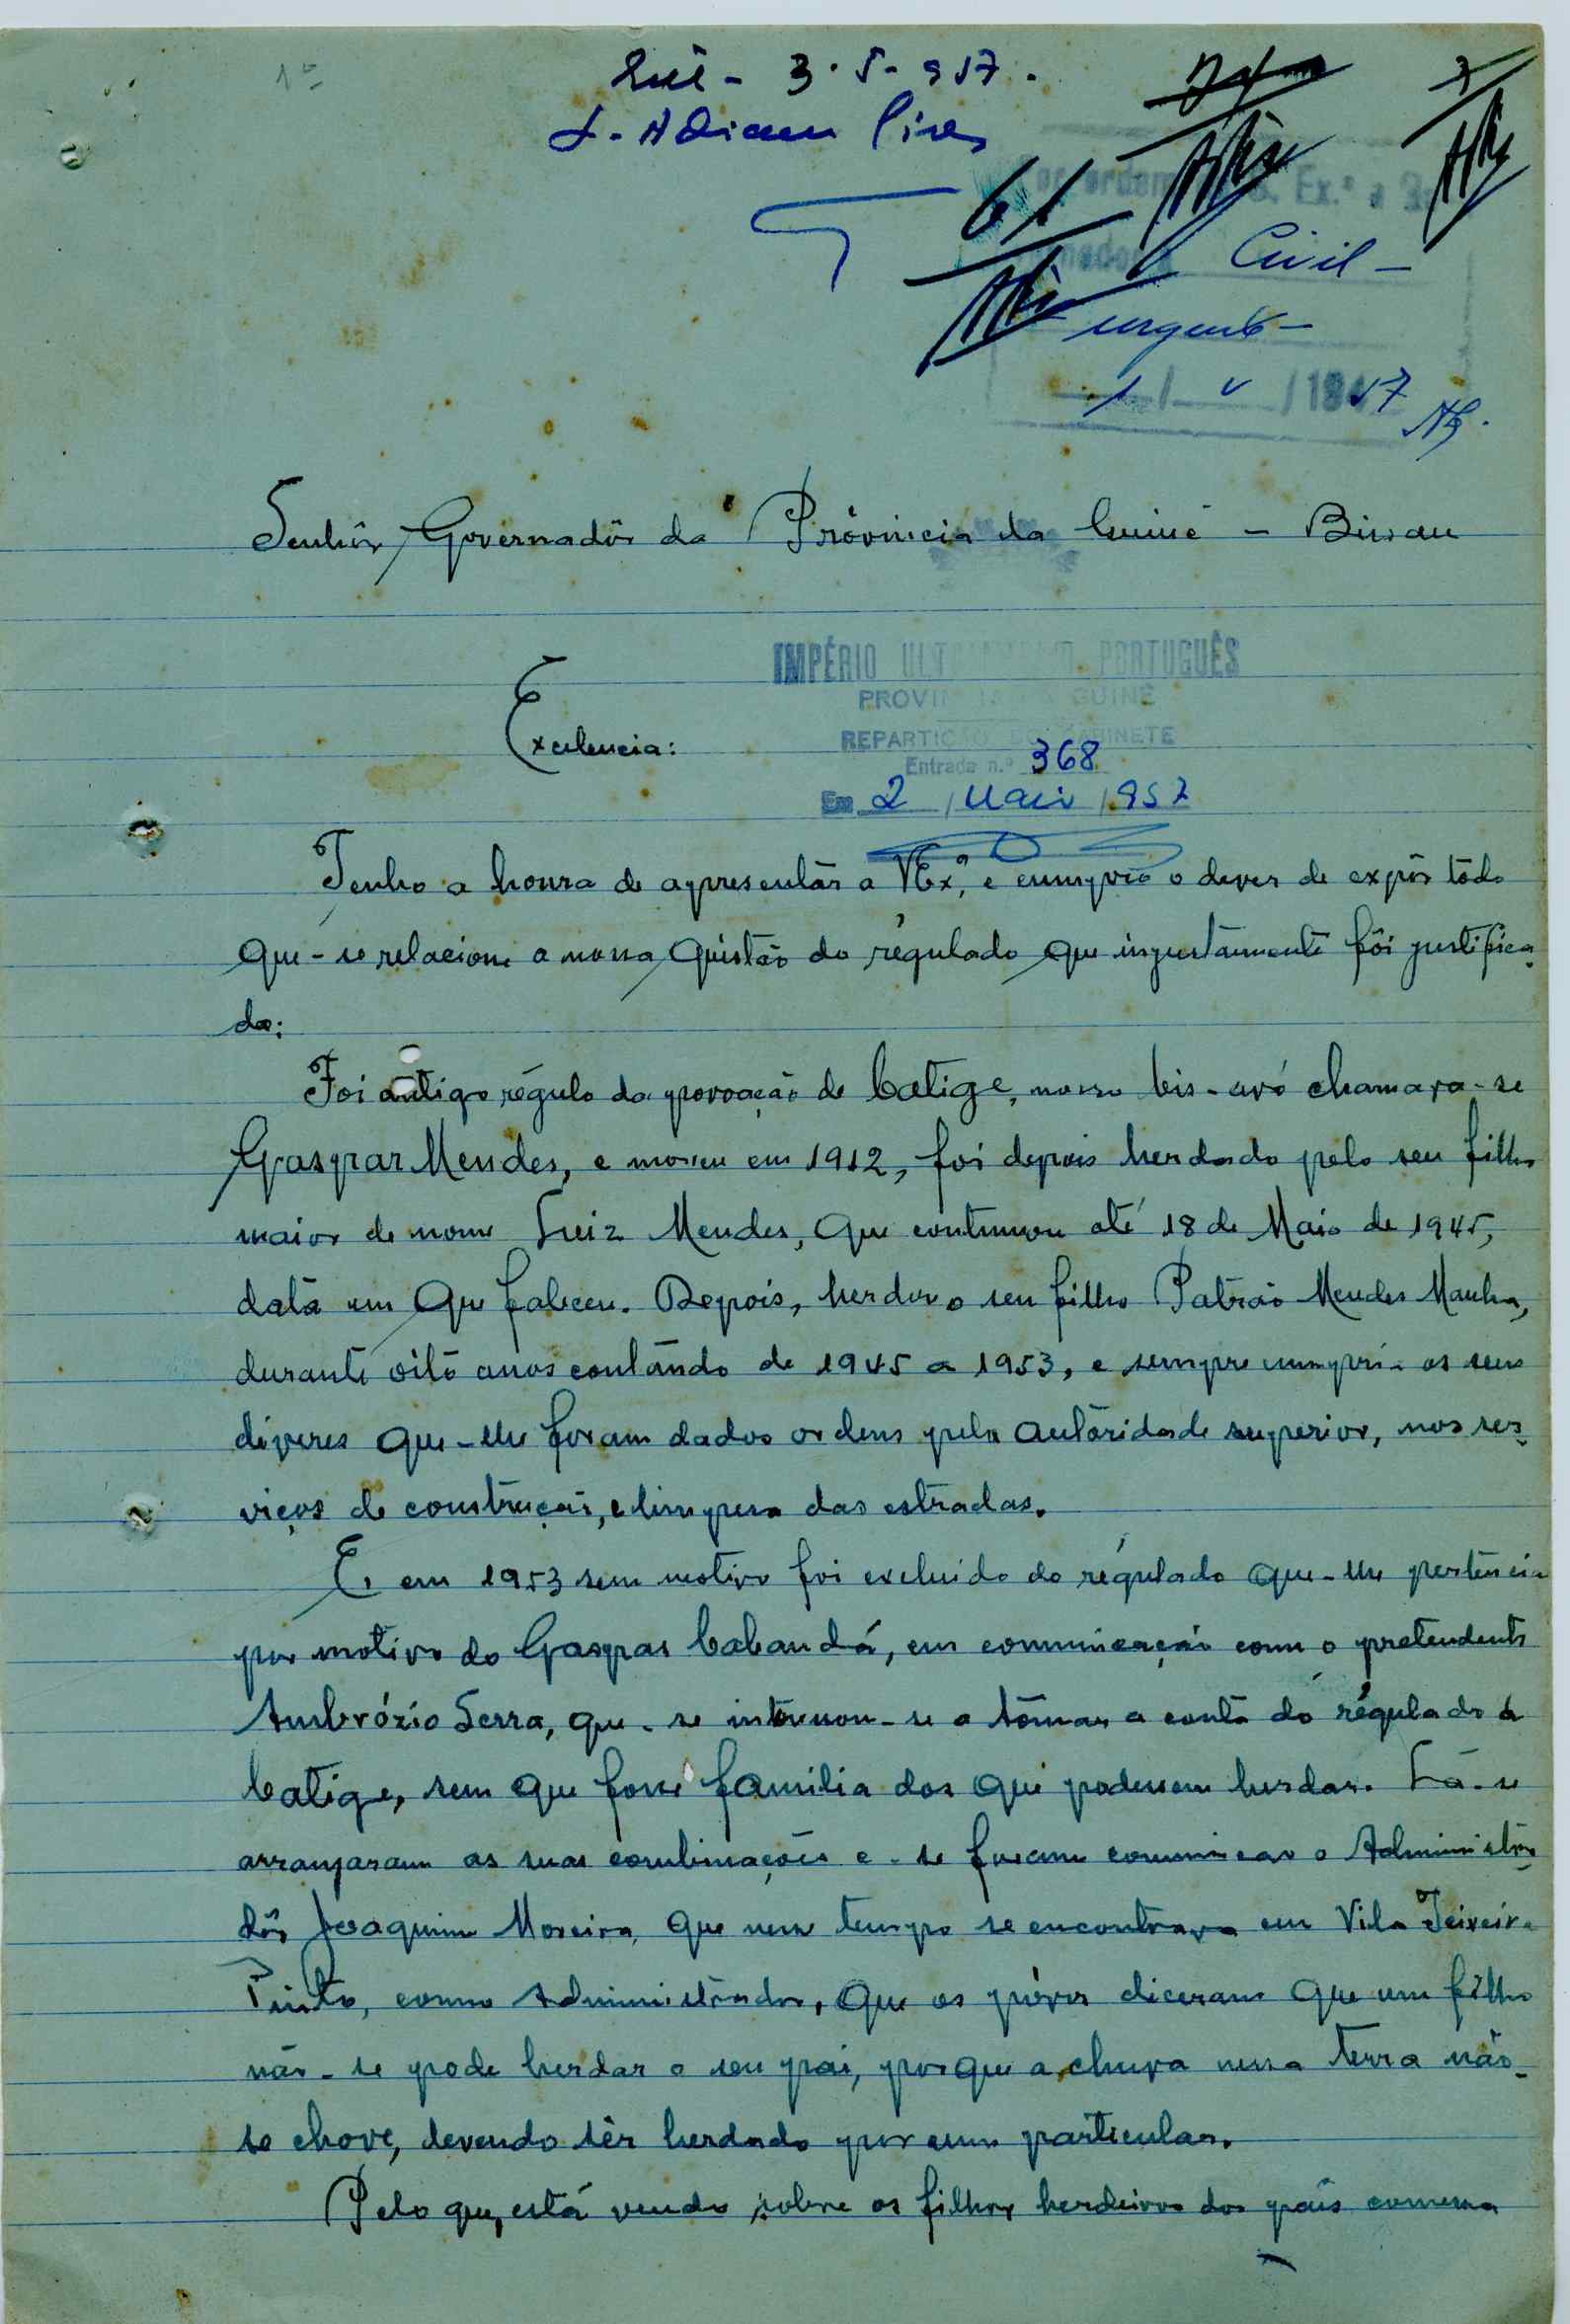 1º
3-5-957.
Por ordem de S. Ex.ª o
Civil -
61
urgente -
1 / V / 1957
Senhôr Governadôr da Províncià da Guiné - Bissau
IMPÉRIO ULTRAMARINO PORTUGUÊS
PROVINCIA DA GUINÉ
REPARTIÇÃO DO GABINETE
Excelencia:
Entrada n.º 368
Em 2 / Maio / 957
Tenho a honra de apresentàr a VExª, e cumprio o dever de expôr tôdo
que-se relacione a nossa quistão do régulado que injustamente fôi justifica-
do:
Foi antigo régulo da povoação de Catige, nosso bis-avó chamava-se
Gaspar Mendes, e moreu em 1912, foi depois herdado pelo seu filho
maior de nome Luiz Mendes, que continuou até 18 de Maio de 1945,
datà em que faleceu. Depois, herdou o seu filho Patrão Mendes Manha,
durante oitô anos contàndo de 1945 a 1953, e sempre cumpria os seus
diveres que-lhe foram dados ordens pela autòridade superior, nos ser-
viços de construção, e limpesa das estradas.
E, em 1953 sem motivo foi excluido do régulado que-lhe pertencia
por motivo do Gaspar Cabandá, em comunicação com o pretendente
Ambrózio Serra, que-se intornou-se a tômar a contà do régulado de
Catige, sem que fosse família dos que podessem herdar. Lá-se
arranjaram as suas combinações e-se foram comunicar o Administra-
dôr Joaquim Moreira, que nesse tempo se encontrava em Vila Teixeira
Pinto, como Administrador, que os póvos diceram que um filho
não-se pode herdar o seu pai, porque a chuva nessa terra não-
se chove, devendo sêr herdado por um particular.
Pelo que, está vendo sobre os filhos herdeiros dos pais comessa